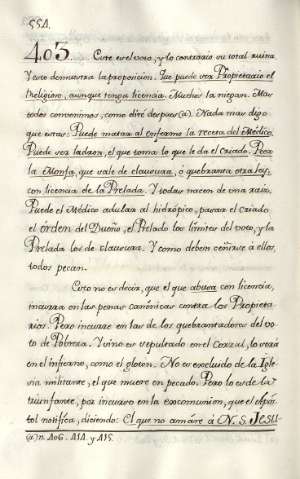 554.
403. Este es el voto, y lo contrario su total ruina
Y esto demuestra la proposicion. Que puede ser Propietario el
Religioso, aunque tenga licencia. Muchos la niegan. Mas
todos convenimos, como diré despues (a). Nada mas digo
que estas: Puede matar al enfermo la receta del Médico.
Puede ser ladron, el que toma lo que le da el criado. Peca
la Monja, que sale de clausura, ó quebranta otra ley,
con licencia de la Prelada. Y todas nacen de una raiz.
Puede el Médico adular al hidrópico, pasar el criado
el órden del Dueño, el Prelado los límites del voto, y la
Prelada los de clausura. Y como deben ceñirse á ellos,
todos pecan.
Esto no es decir, que el que abusa con licencia,
incurra en las penas canónicas contra los Propieta-
rios. Pero incurre en las de los quebrantadores del vo-
to de Pobreza. Y si no es sepultado en el corral, lo será
en el infierno, como el gloton. No es excluido de la Igle-
sia militante, el que muere en pecado. Pero lo es de la
triunfante, por incurso en la excomunion, que el após-
tol notifica, diciendo: El que no amáre á N. S. Jesu-
(a) n. 406. 414. y 415.